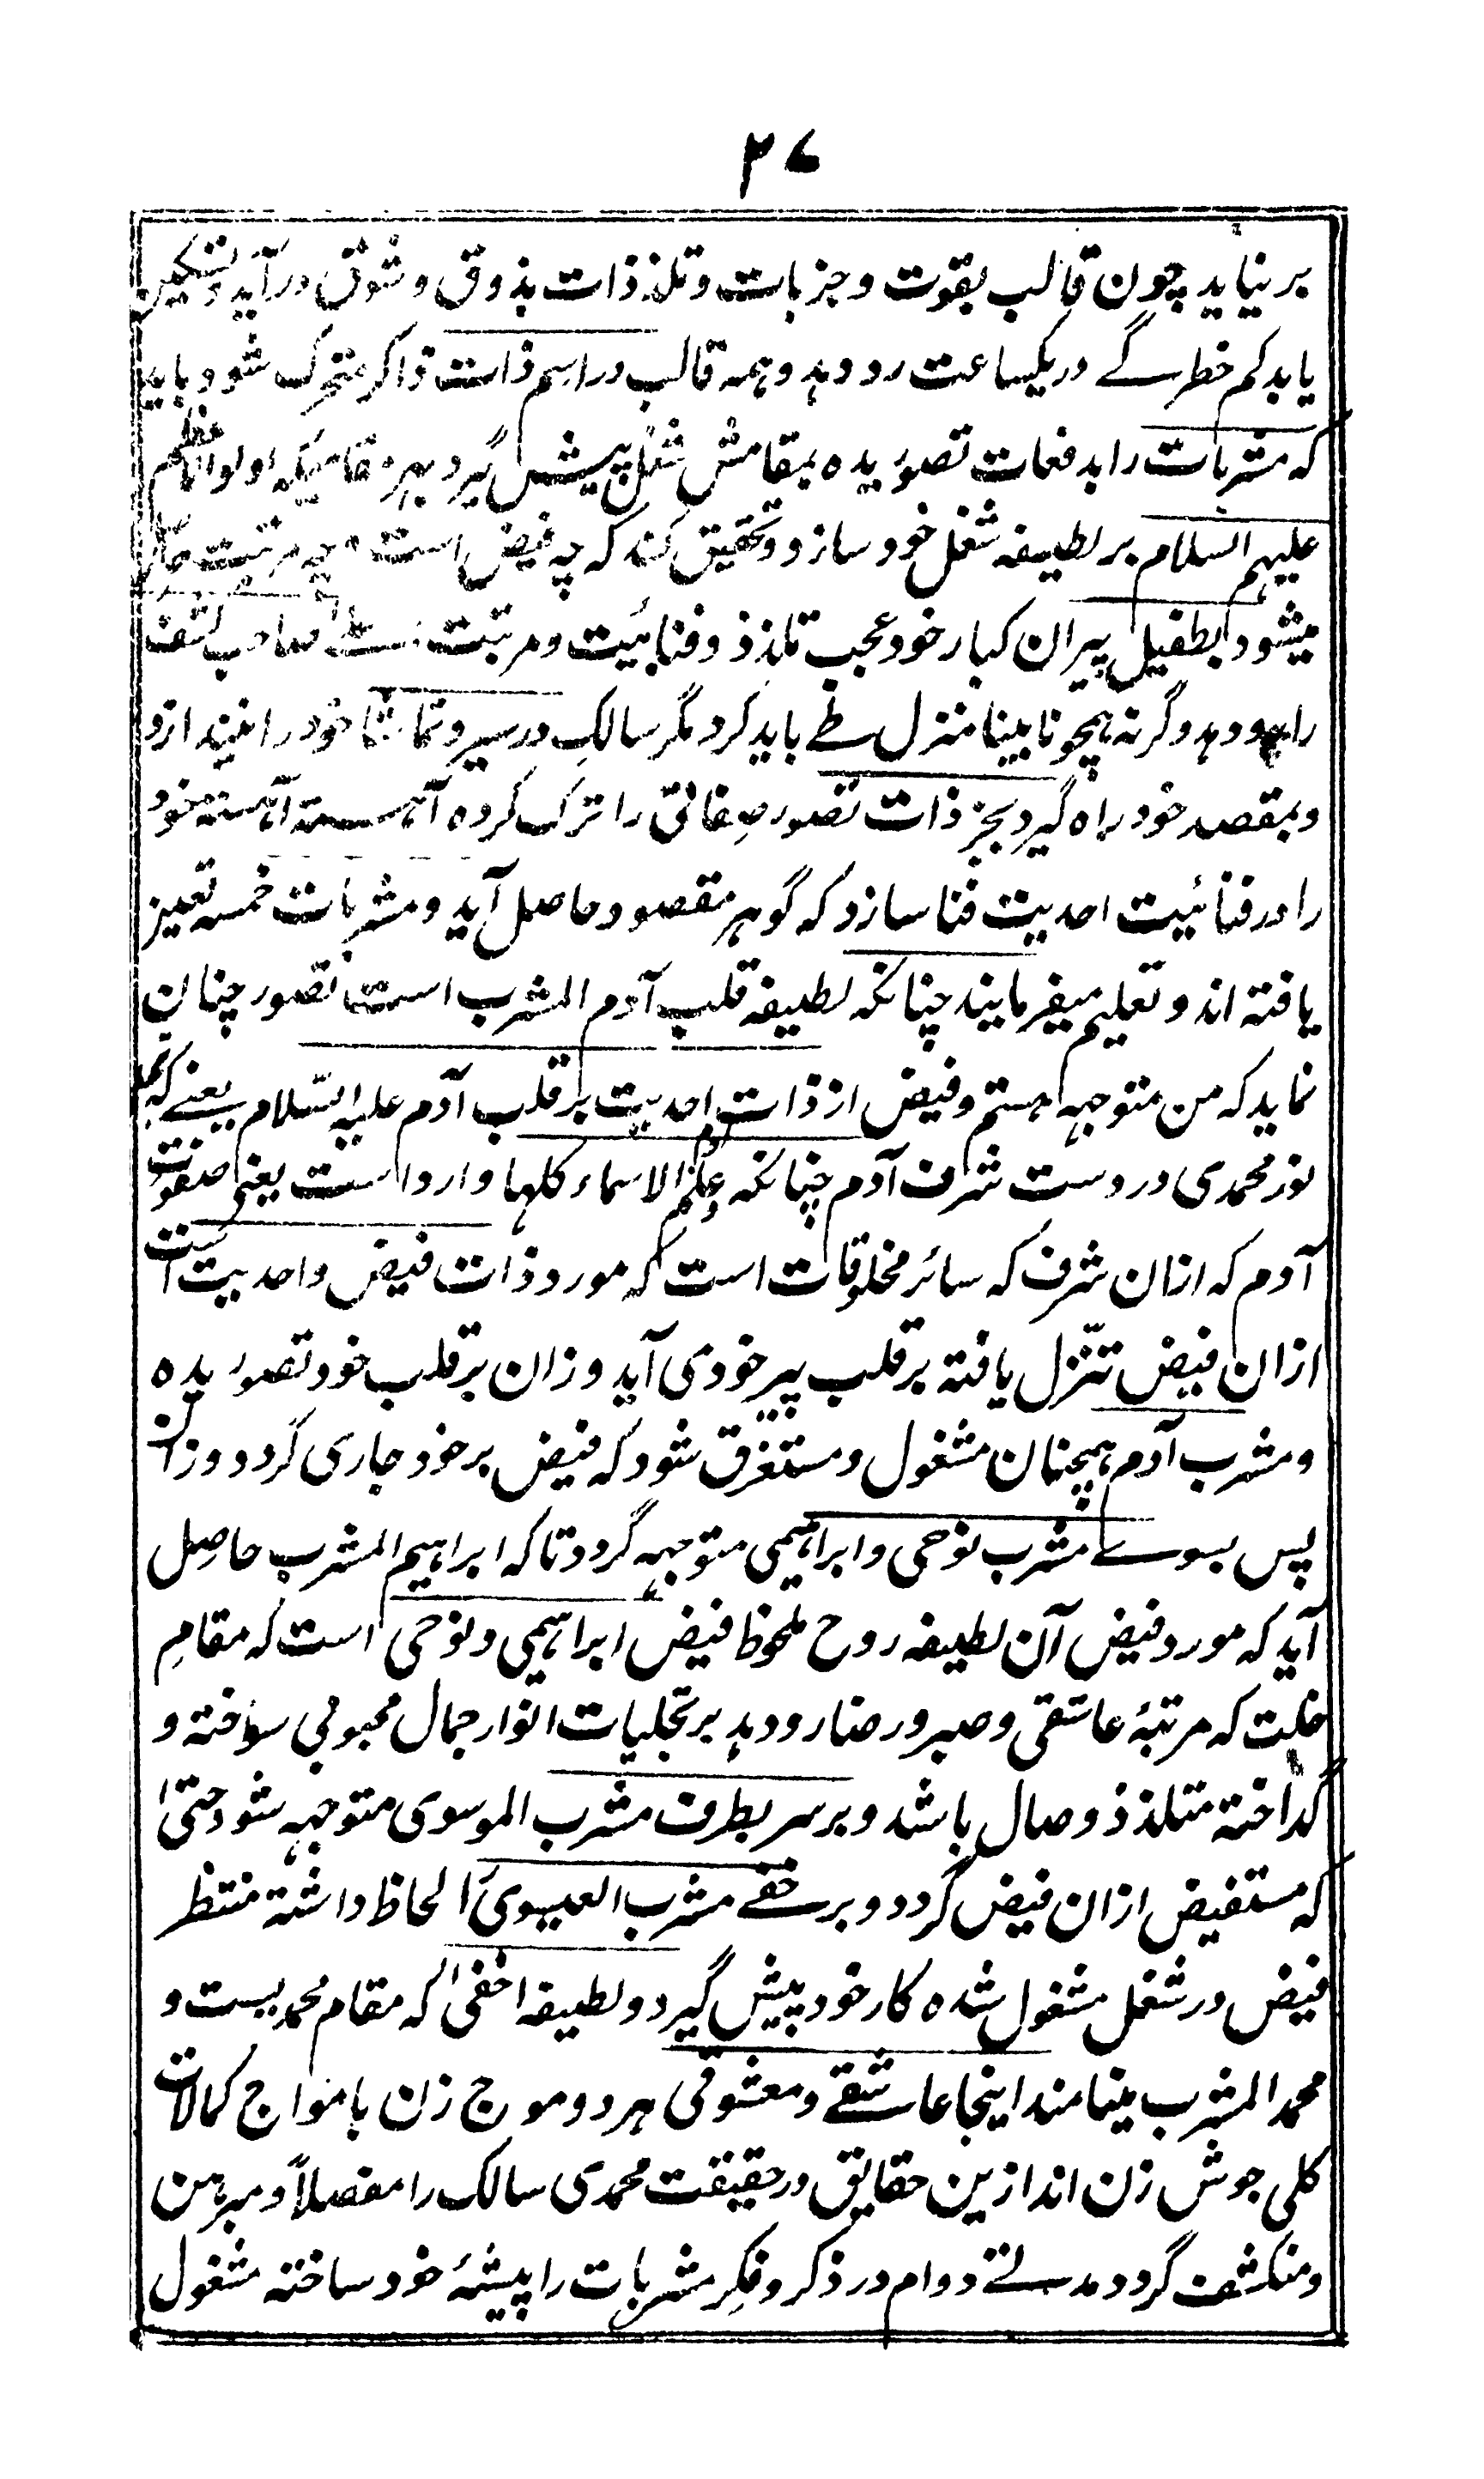 ۳۷
برنیاید چون قالب بقوت و جزبات و تلذذات بذوق و شوق درآید و تسکین
یابد کم خطرگے در یکساعت رو دہد و ہمہ قالب در اسم ذات ذاکر متحرک شود باید
کہ مشربات را بدفعات تصوریدہ بمقامش شغل پیش گیرد بہر مقامیکہ اولوالعظم
علیہم السلام بر لطیفہ شغل خود سازد و تحقیق کند کہ چہ فیض است و چہ مرتبت حاصل
میشود بطفیل پیران کبار خود عجب تلذذ و فنائیت و مرتبت صاحب کشف
را رو دہد وگرنہ ہمچو نابینا منزل طے باید کرد مگر سالک در سیر و تماشا خود را نیندازد
و بمقصد خود راہ گیرد بجز ذات تصور صفاتی را ترک کردہ آہستہ آہستہ خود
را در فنائیت احدیت فنا سازد کہ گوہر مقصود حاصل آید و مشربات خمسہ تعیز
یافتہ اند و تعلیم میفرمایند چنانکہ لطیفہ قلب آدم المشرب است تصور چنان
نماید کہ من متوجہ ہستم و فیض از ذات احدیت بر قلب آدم علیہ السّلام یعنے کہ
نور محمدی در وست شرف آدم چنانکہ وعلّم آدم الاسماء کلہا وارد است یعنی صفوت
آدم کہ ازان شرف کہ سائر مخلوقات است کہ مورد ذات فیض واحدیت است
ازان فیض تنّزل یافتہ بر قلب پیر خود می آید و زان بر قلب خود تصوریدہ
و مشرب آدم ہمچنان مشغول و مستغرق شود کہ فیض بر خود جاری گردد و زان
پس بسوے مشرب نوحی و ابراہیمی متوجہ گردد تاکہ ابراہیم المشرب حاصل
آید کہ مورد فیض آن لطیفہ روح ملحوظ فیض ابراہیمی و نوحی است کہ مقامِ
خلت کہ مرتبۂ عاشقی و صبر و رضا رو دہد بر تجلیات انوار جمال محبوبی سوختہ و
گداختہ متلذذ وصال باشد و بر سر بطرف مشرب الموسوی متوجہ شود حتیٰ
کہ مستفیض ازان فیض گردد و بر خفے مشرب العیسوی الحاظ داشتہ منتظر
فیض در شغل مشغول شدہ کار خود پیش گیرد و لطیفہ اخفیٰ کہ مقام محمدیست و
محمد المشرب مینامند اینجا عاشقے و معشوقی ہردو موج زن بامواج کمالات
کلی جوش زن اند ازین حقایق در حقیقت محمدی سالک را مفصلاً و مبرہن
و منکشف گردد مدتے دوام در ذکر و فکر مشربات را پیشۂ خود ساختہ مشغول